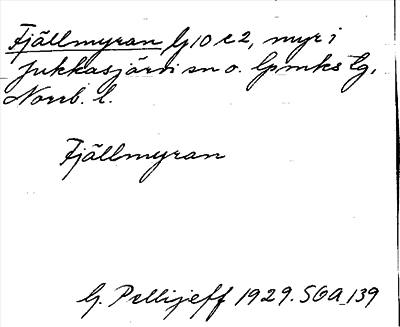 Fjällmyran G10 c2, myr i
Jukkasjärvi sn o. lpmks tg,
Norrb. l.
Fjällmyran
G. Pellijeff 1929. SOA 139